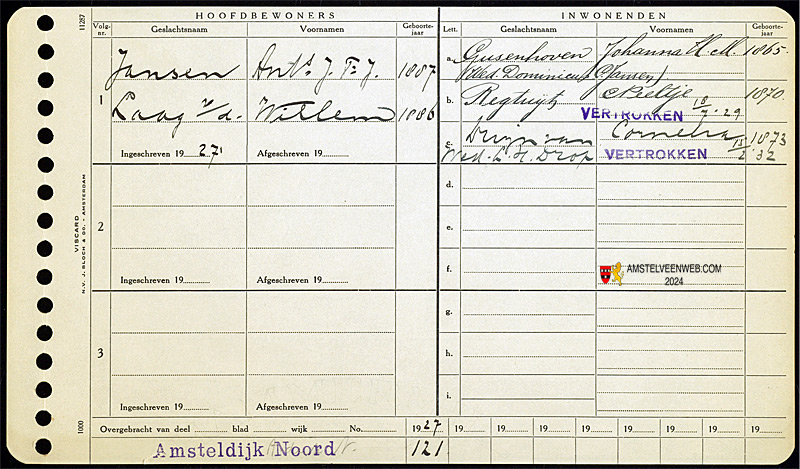 11287
HOOFDBEWONERS
INWONENDEN
Volg-nr.
Geslachtsnaam
Voornamen
Geboorte-jaar
Lett.
Geslachtsnaam
Voornamen
Geboorte-jaar
1
Jansen Ants J. Ts J. 1887
Laag v/d. Willem 1886
Ingeschreven 19 27
Afgeschreven 19
a. Gusenhoven Johanna H. M. 1865
(Wed. Dominicus Jansen)
b. Regtuijt Neeltje 1870
VERTROKKEN 18/7 '29
c. Cornelia 1873
Wed. L. H. Drop VERTROKKEN 15/2 '32
d.
e.
f.
g.
h.
i.
2
Ingeschreven 19
Afgeschreven 19
3
Ingeschreven 19
Afgeschreven 19
VISCARD
N.V. J. BLOCH & DG. - AMSTERDAM
1000
AMSTELVEENWEB.COM
2024
Overgebracht van deel blad wijk No. 1927 19 19 19 19 19 19 19 19
Amsteldijk Noord 121